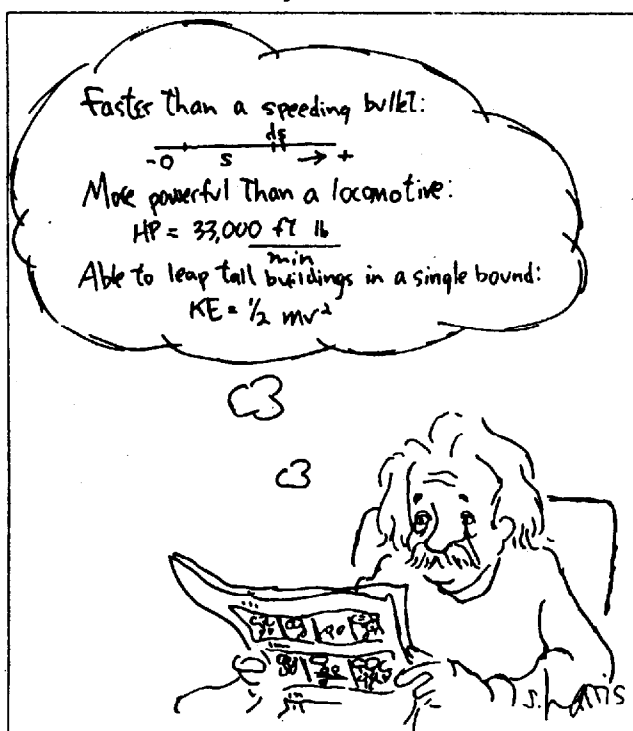 Faster Than a speeding bullet:
ds
-0 s → +
More powerful Than a locomotive:
HP = 33,000 ft lb
min
Able to leap tall buildings in a single bound:
KE = 1/2 mv²
s. harris